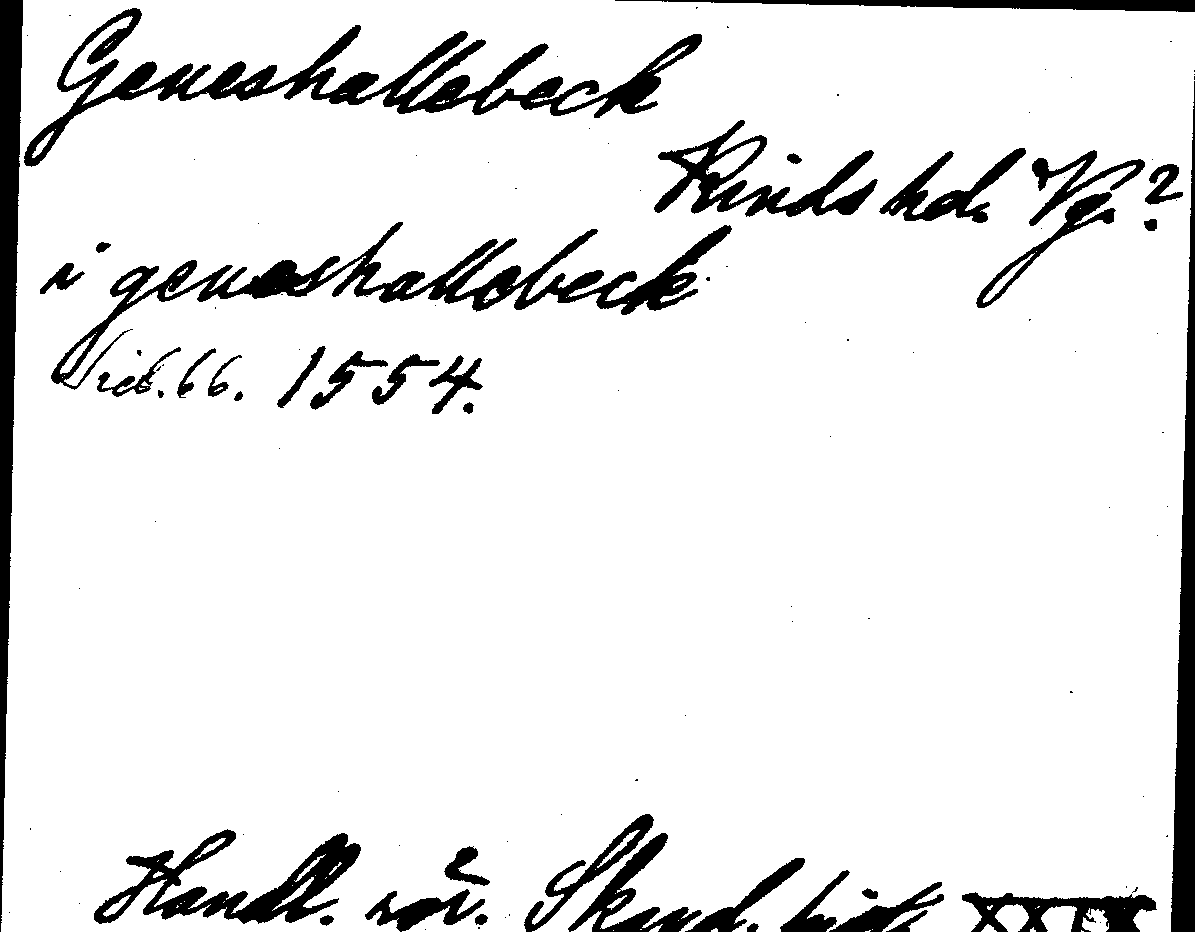 Geneshallebeck
Kinds hd. Vg.?
i geneshallebeck
66. 1554.
Handl. rör. Skand. hist.